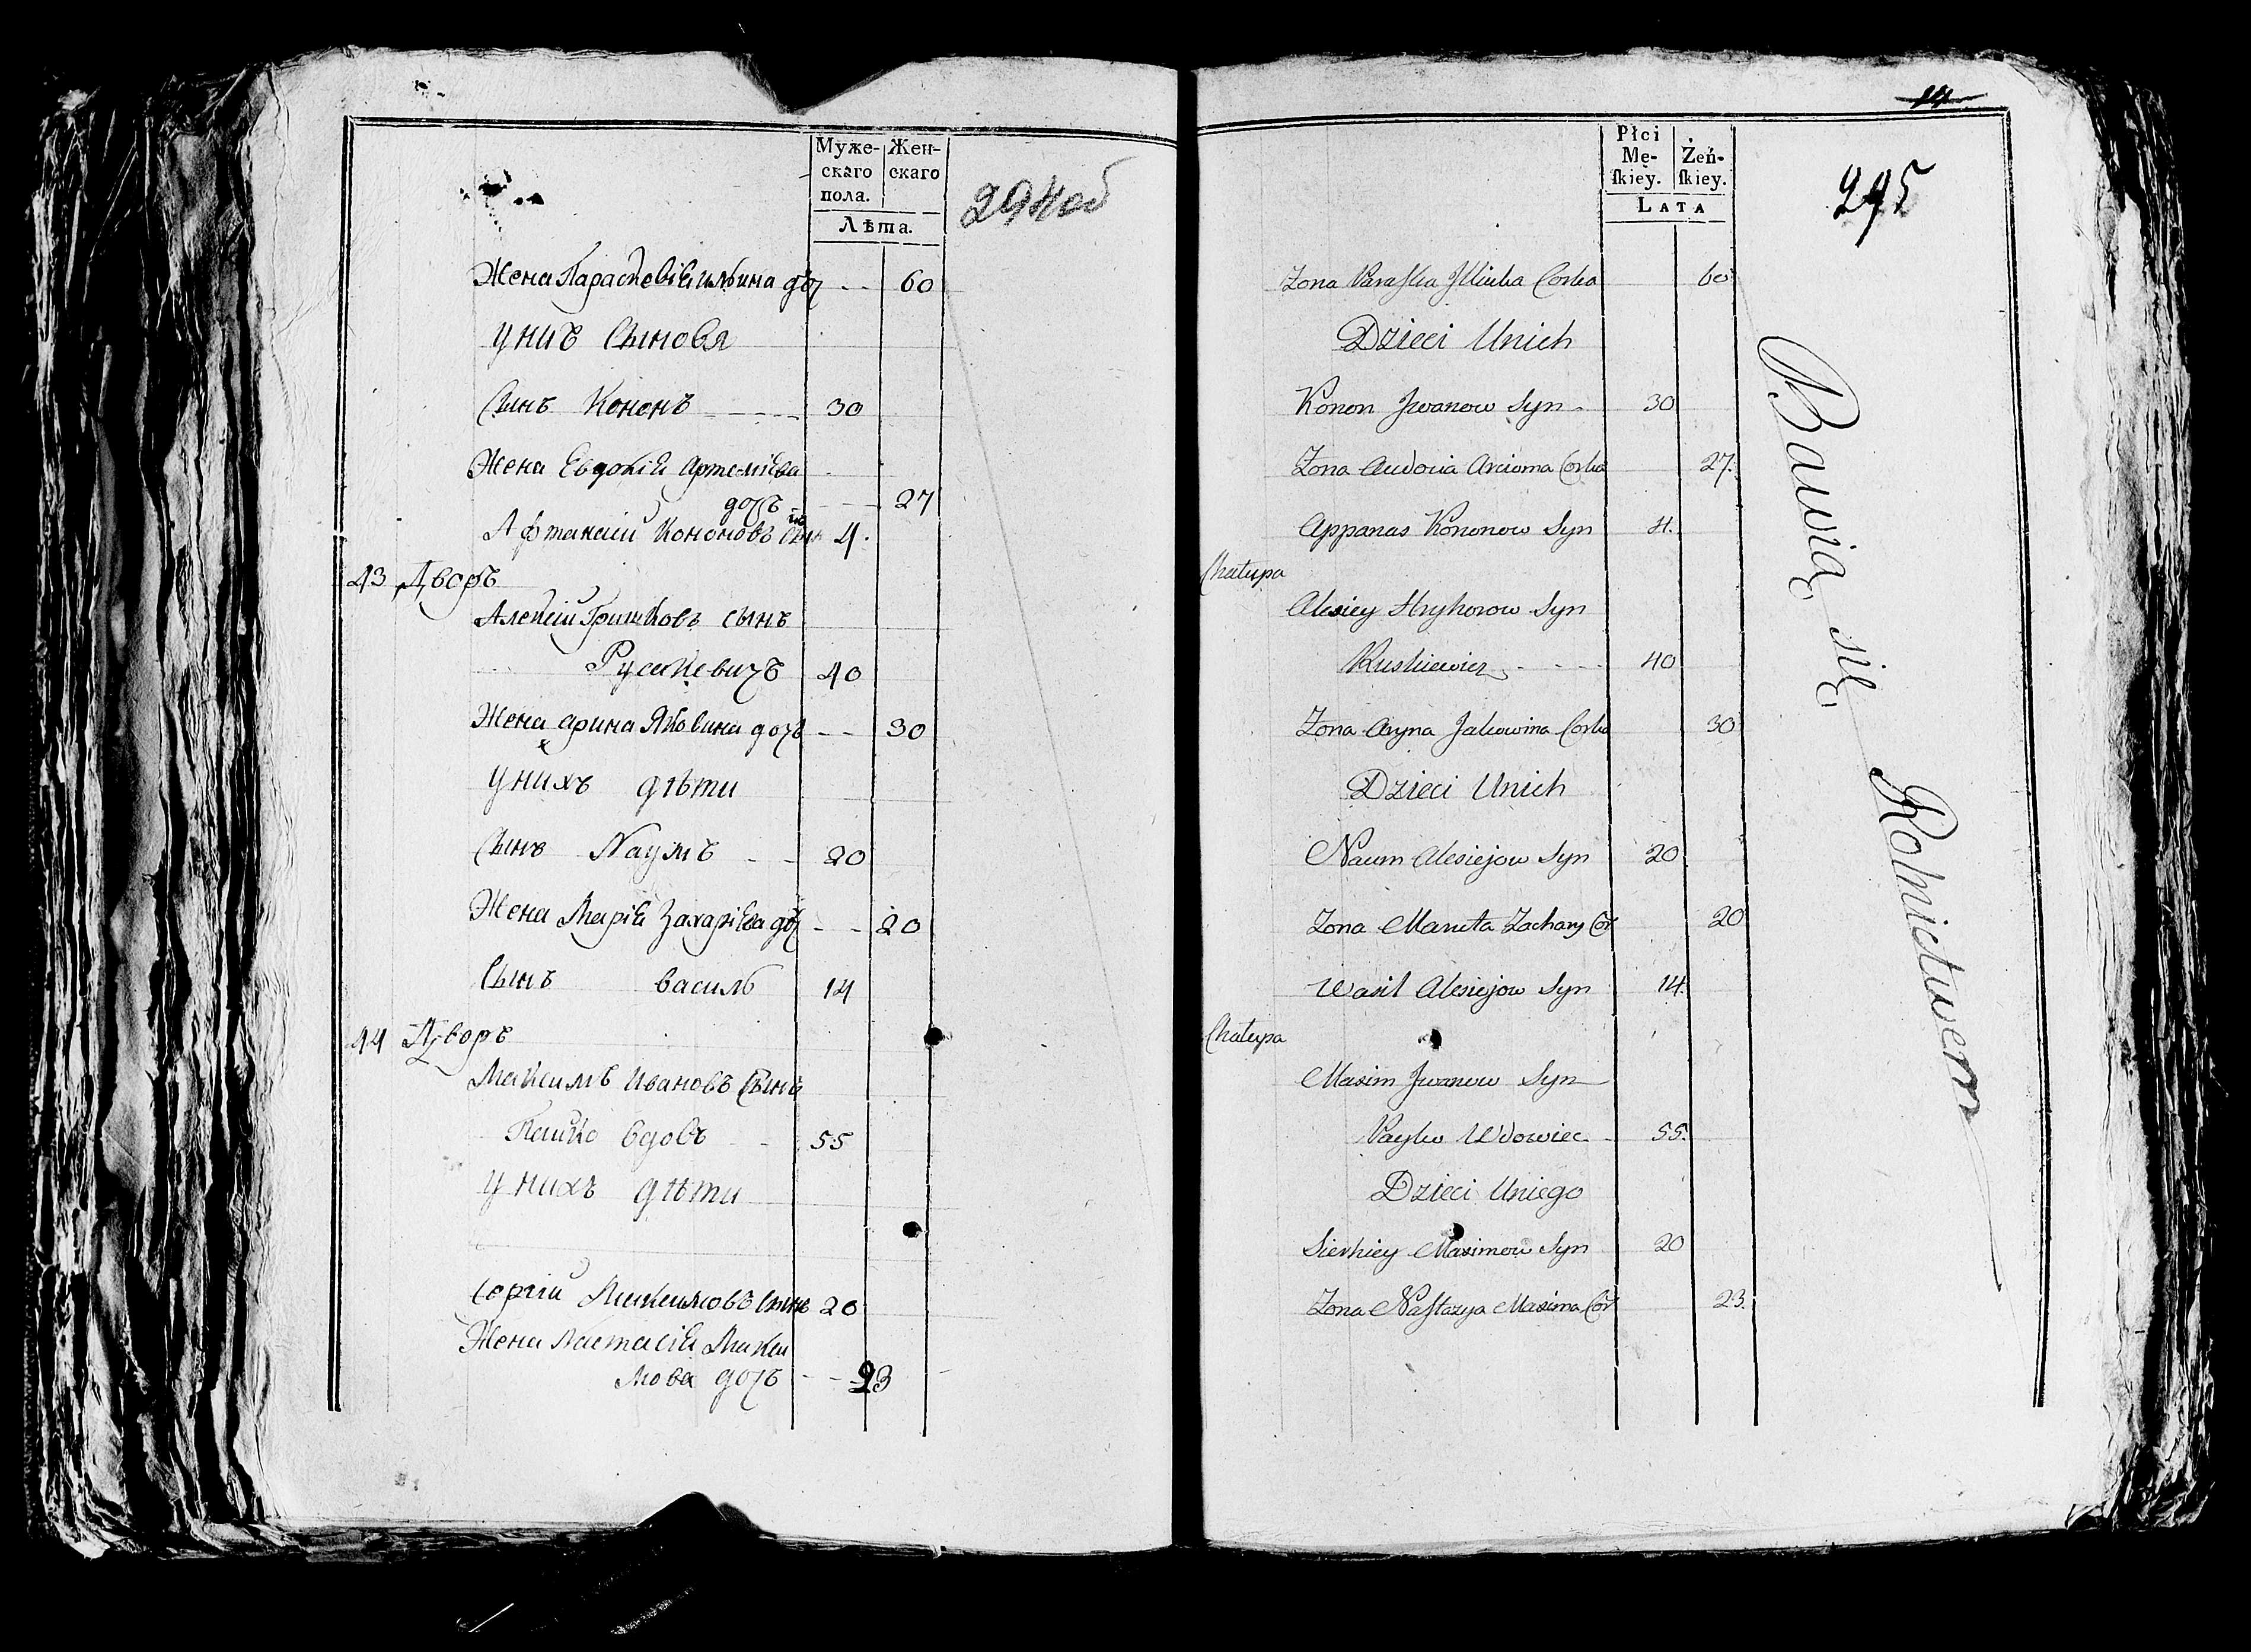 Муже-
скаго
пола.
Жен-
скаго
Лѣта.
294 об
Жена Параскевiя Ильина дочь -- 60
Унихъ Сыновя
Сынъ Кононъ 30
Жена Евдокiя Артемiева
дочь 27
Афтанасiй Кононовъ Сынъ 4.
43 Дворъ
Алексiй Гришковъ сынъ
Рускевичъ 40
Жена Арина Яковина дочь -- 30
Унихъ дѣти
Сынъ Наумъ -- 20
Жена Марiя Захарiева дочь -- 20
Сынъ василь 14
44 Дворъ
Максимъ Ивановъ Сынъ
вдовъ 55
Унихъ дѣти
Сергiй Максимовъ Сынъ 20
Жена Настасiя Макси
мова дочь -- 23
14
Płci
Mę-
ſkiey.
Żeń-
ſkiey.
LATA
295
Zona Paraſka Jllinka Corka 60
Dzieci Unich
Konon Jwanow Syn 30
Zona Audocia Arcioma Corka 27.
Appanas Kononow Syn 4.
Chałupa
Alesiey Hryhorow Syn
Ruskiewicz 40
Zona Aryna Jakowina Corka 30
Dzieci Unich
Naum Alesiejow Syn 20
Zona Maruta Zachary Cor 20
Wasil Alesiejow Syn 14.
Chałupa
Maxim Jwanow Syn
Wdowiec 55.
Dzieci Uniego
Sierhiey Maximow Syn 20
Zona Naſtazya Maxima Cor 23.
Bawią się Rolnictwem